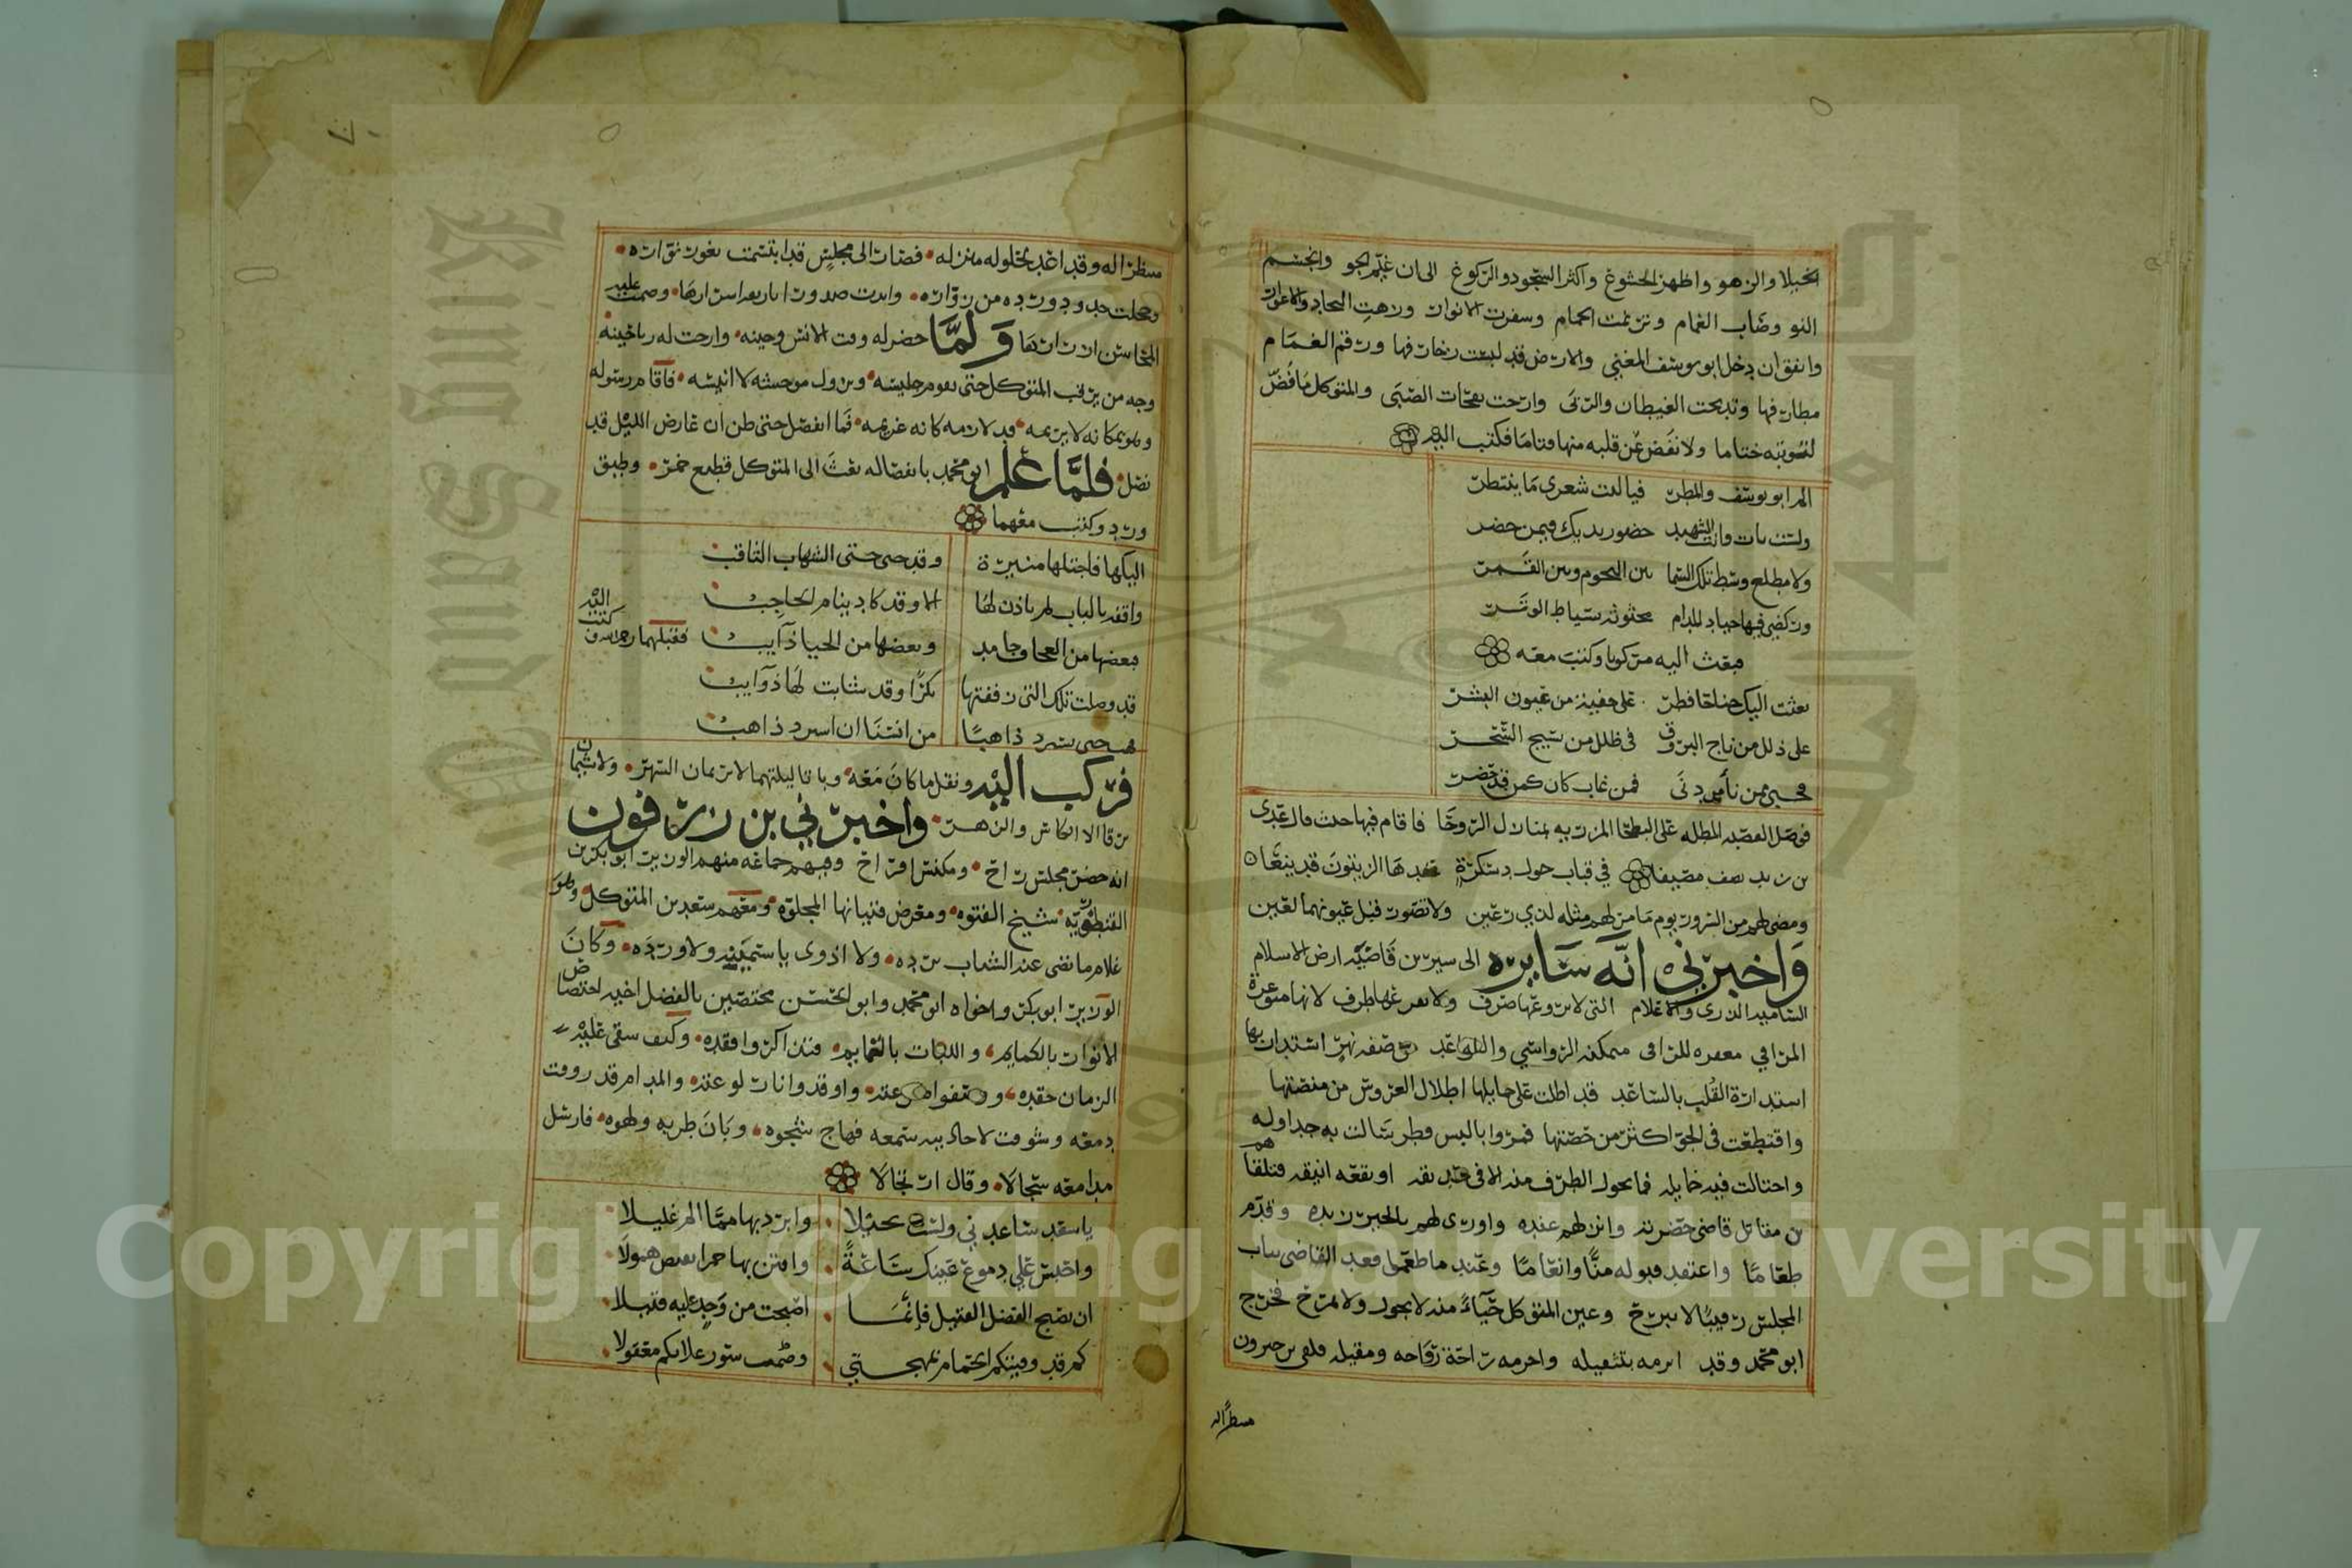 الخيلا والزهو واظهر الخشوع واكثر السجود والركوع الى ان غيم الجو وانجسم
النو وصاب الغمام وترنمت الحمام وسفرت الانوار وزهت النجاد والاغوار
واتفق ان دخل ابو يوسف المغني والارض قد لبست زخارفها ورقم الغمام
مطارفها وتدبجت الغيطان والربى وارجت نفحات الصبى والمتوكل ما فض
لتوبته ختاما ولا نفض عن قلبه منها قتاما فكتب اليه
الم ابو يوسف والمطر فيا ليت شعري ما ينتظر
ولست باب وانت الشهيد حضور يديك فيمن حضر
ولا مطلع وسط تلك السما بين النجوم وبين القمر
وركضي فيها جياد المدام محثوثة سياط الوتر
فبعث اليه مركوبا وكتب معه
بعثت اليك جناحا فطر على خفية من عيون البشر
على ذلل من نتاج البروق في ظلل من نسيج الشجر
فحسبي ممن نأى من دنى فمن غاب كان كمن قد حضر
فوصل القصبة المطلة على البطحا المزرية بمنازل الروحا فاقام فيها حيث قال عدي
بن زيد يصف مصيفا في قباب حول دسكرة حولها الزيتون قد ينعا
ومضى لهم من السرور يوم ما مر لهم مثله لذي رعين ولا تصور قبل عيونهما لعين
واخبرني انه سايره الى سيرين قاصية ارض الاسلام
السامية الذرى والاعلام التي لا يروعها صرف ولا يفرعها طرف لانها متوعرة
المراقي معفرة للراقي متمكنة الرواسي والقواعد من ضفة نهر استدار بها
استدارة القلب بالساعد قد اطلت على خمايلها اطلال العروس من منصتها
واقتطعت في الجو اكثر من حصتها فمروا بالبس قطر سالت به جداوله
واختالت فيه خمايله فما يجول الطرف منه الا في حديقة او بقعة انيقة فتلقاهم
بن مقاتل قاضي حضرته وانزلهم عنده واورى لهم بالخير زنده وقدم
طعاما واعتقد قبوله منا وانعاما وعند ما طعموا قعد القاضي بباب
المجلس رقيبا لا يبرح وعين المتوكل حياء منه لا يجول ولا تمرح فخرج
ابو محمد وقد ابرمه بتثقيله واحرمه راحة رواحه ومقيله فلقي بن خيرون
منتظرا له
منتظرا له وقد اعد لحلوله منزله فصار الى مجلس قد ابتسمت ثغور نواره
وخجلت خدود ورده من زواره وابدت صدور اباريقه اسرارها وضمت عليه
المحاسن ازرارها ولما حضر له وقت الانس وحينه وارجت له رياحينه
وجه من يرقب المتوكل حتى يقوم جليسه ويزول موحشه لا انيسه فاقام رسوله
وهو بمكانه لا يريمه قد لازمه كانه غريمه فما انفصل حتى ظن ان عارض الليل قد
نصل فلما علم ابو محمد بانفصاله بعث الى المتوكل قطيع خمر وطبق
ورد وكتب معهما
اليكها فاجتلها منيرة وقد خبى حتى الشهاب الثاقب
واقفة بالباب لم ياذن لها الا وقد كاد ينام الحاجب
فبعضها من المخاف جامد وبعضها من الحيا ذآيب فقبلهما رحمه الله وكتب اليه
قد وصلت تلك التي زففتها بكرا وقد شابت لها ذوآيب
فهب حتى نسترد ذاهبا من انسنا ان استرد ذاهب
فركب اليه ونقل ما كان معه وباتا ليلتهما لا يريمان السهر ولا يشيمان
برقا الا الكاس والزهر واخبرني بن زرقون
انه حضر مجلس راح ومكنس افراح وفيهم جماعة منهم الوزير ابو بكر بن
القبطورية شيخ الفتوه ومعرض فتيانها المجلوه ومعهم سعد بن المتوكل وهو
غلام ما نضى عنه الشباب برده ولا اذوى ياسمينه ولا ورده وكان
الوزير ابو بكر واخواه ابو محمد وابو الحسن مختصين بالفضل اخيه اختصاص
الانوار بالكمايم واللبات بالتمايم فتذاكروا فقده وكيف سقى عليه
الزمان حقده واوقدوا نار لوعته والمدام قد روقت
دمعه وشوقت لاحاديثه سمعه فهاج شجوه وبان طربه ولهوه فارسل
مدامعه سجالا وقال ارتجالا
يا سعد ساعدني ولست بخيلا وابرد بها مما الم غليلا
واحبس علي دموع عينك ساعة وامنن بها حمرا تفيض همولا
ان يصبح الفضل القتيل فانما اصبحت من وجد عليه قتيلا
كم قد وقيتكم الحمام بمهجتي وضممت ستور علائكم معقولا
Copyright © King Saud University
King Saud University
1957